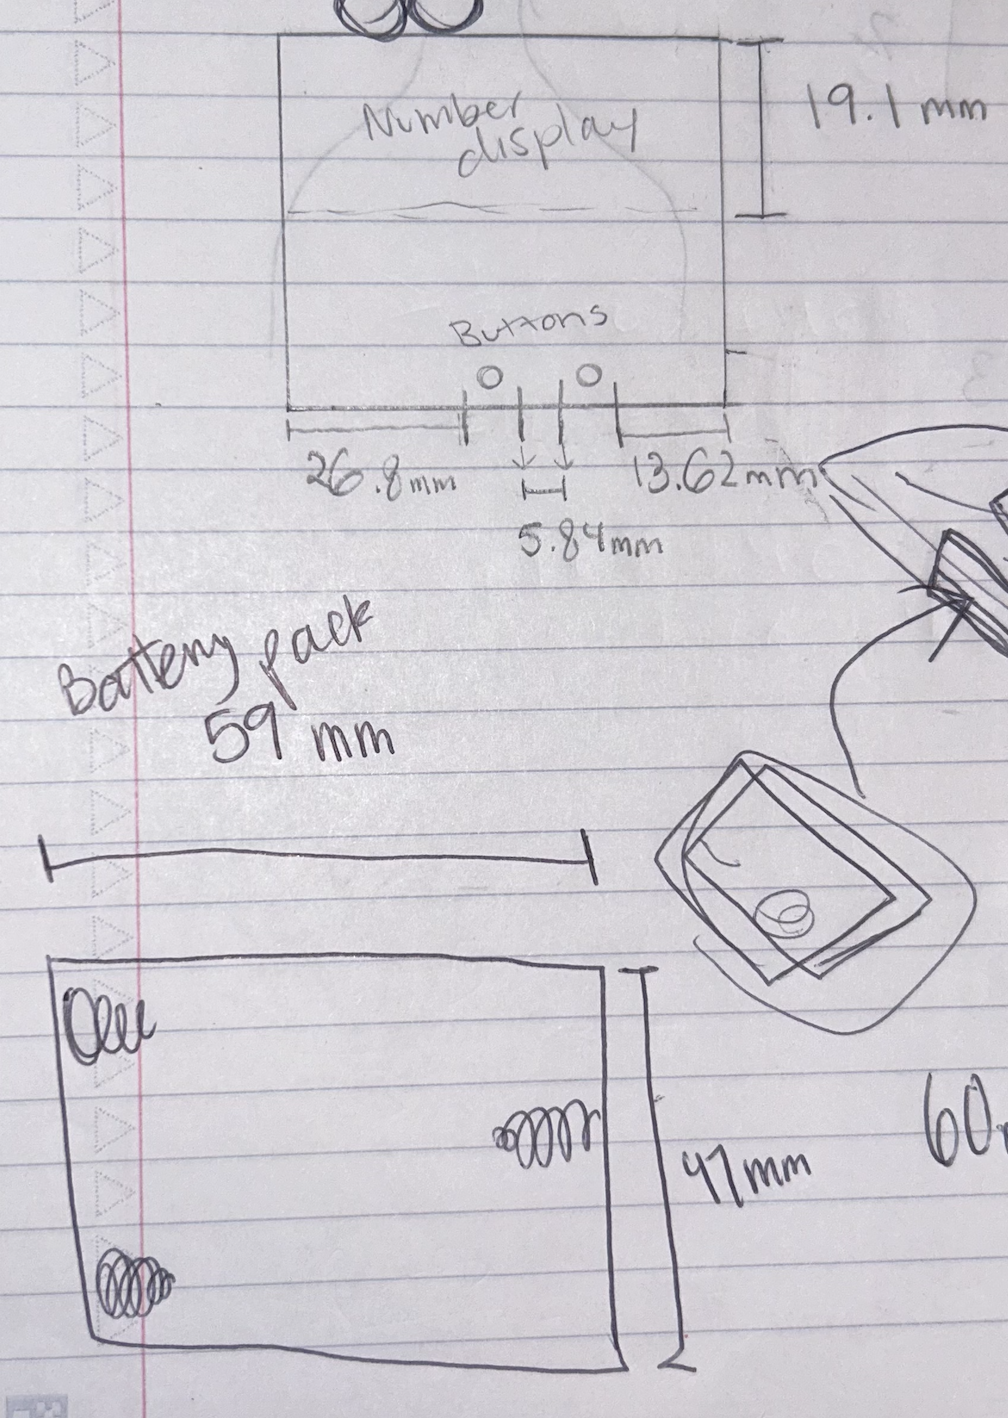 Number
display
19.1 mm
Buttons
26.8mm
13.62mm
5.84mm
Battery pack
59 mm
47mm
60